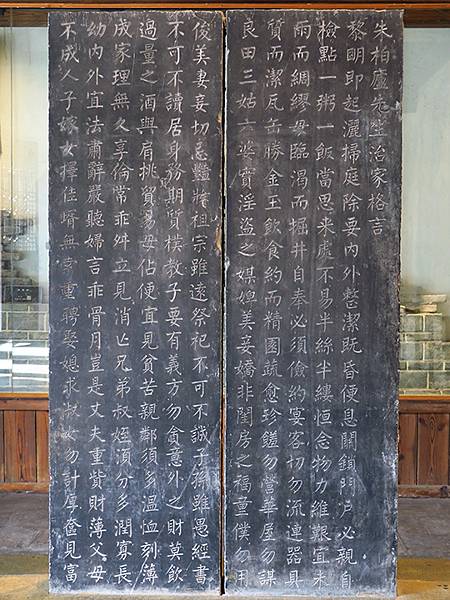 朱柏廬先生治家格言
黎明即起灑掃庭除要內外整潔既昏便息關鎖門戶必親自
檢點一粥一飯當思來處不易半絲半縷恒念物力維艱宜未
雨而綢繆毋臨渴而掘井自奉必須儉約宴客切勿流連器具
質而潔瓦缶勝金玉飲食約而精園蔬愈珍饈勿營華屋勿謀
良田三姑六婆實淫盜之媒婢美妾嬌非閨房之福童僕勿用
俊美妻妾切忌豔粧祖宗雖遠祭祀不可不誠子孫雖愚經書
不可不讀居身務期質樸教子要有義方勿貪意外之財莫飲
過量之酒與肩挑貿易毋佔便宜見貧苦親鄰須多溫恤刻薄
成家理無久享倫常乖舛立見消亡兄弟叔姪須分多潤寡長
幼內外宜法肅辭嚴聽婦言乖骨月豈是丈夫重貲財薄父母
不成人子嫁女擇佳婿無索重聘娶媳求叔女勿計厚奩見富